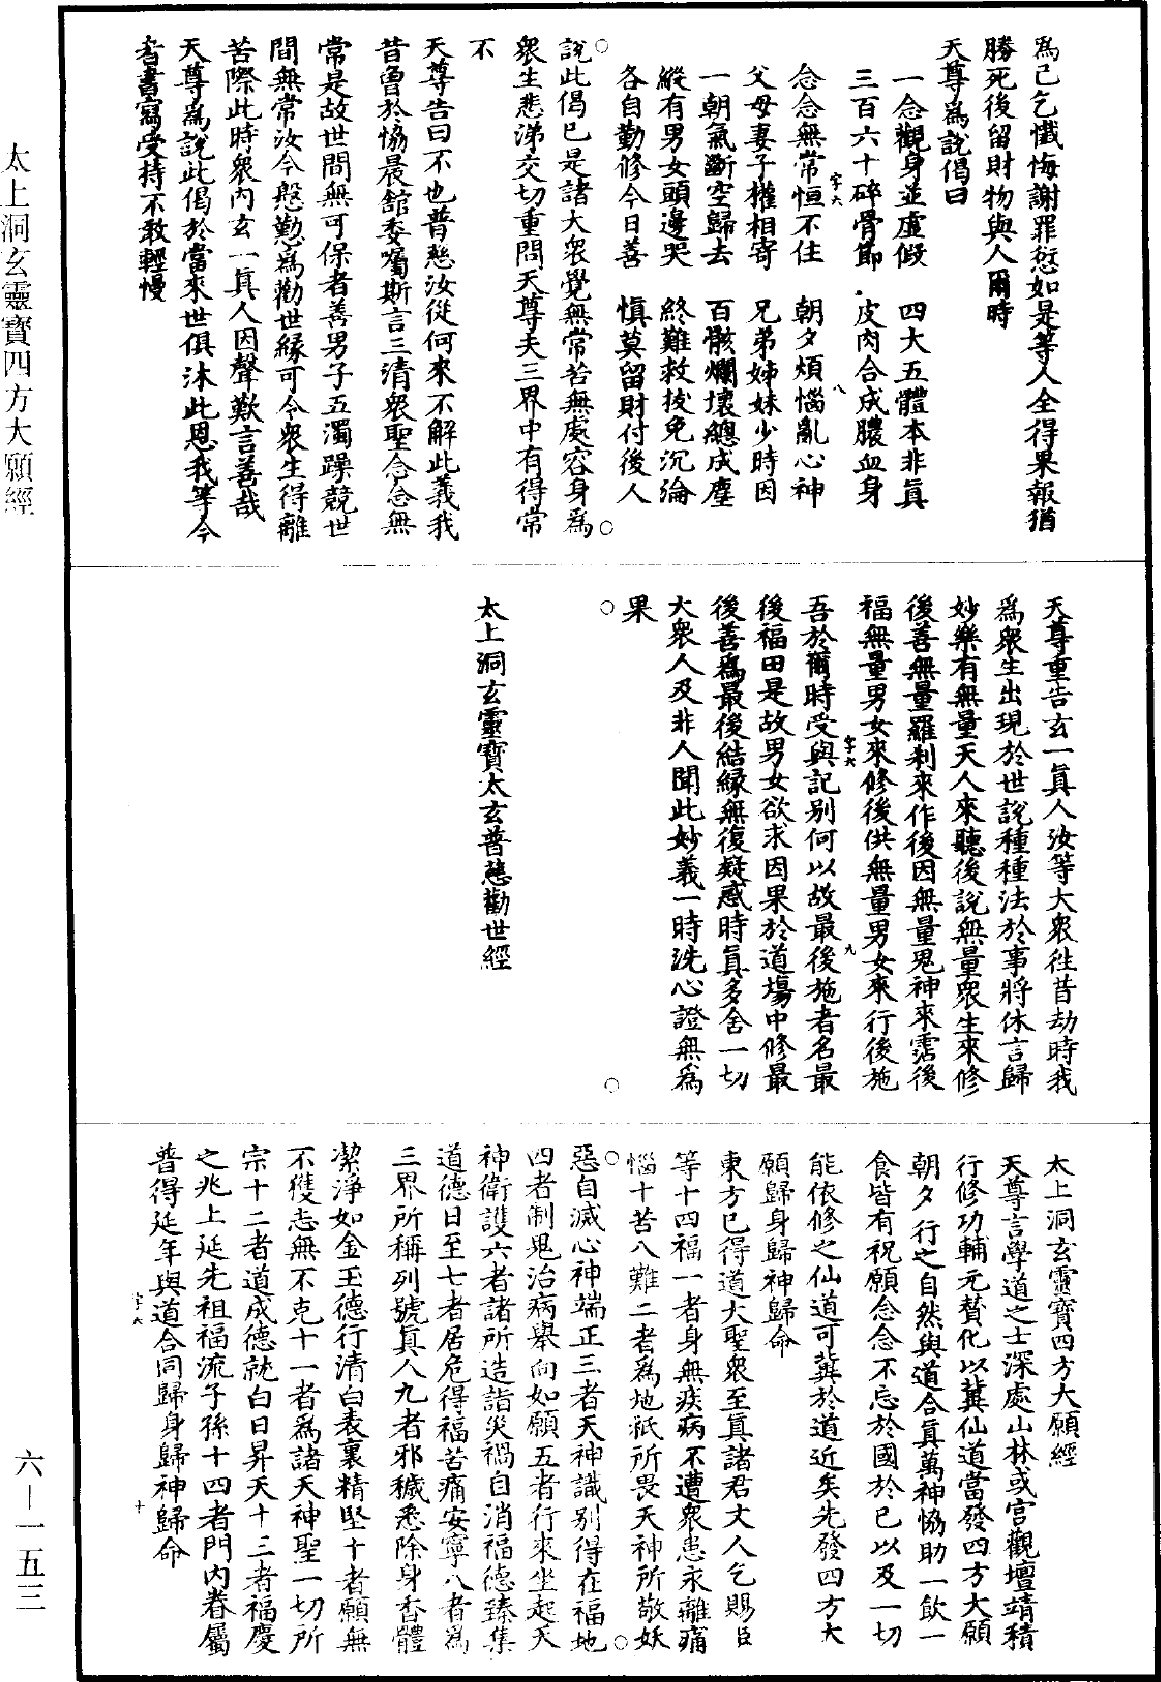 太上洞玄靈寶四方大願經
六—一五三
爲己乞懺悔謝罪愆如是等人全得果報猶
勝死後留財物與人爾時
天尊爲說偈曰
一念觀身並虛假　四大五體本非眞
三百六十碎骨節　皮肉合成膿血身
字六　八
念念無常恒不住　朝夕煩惱亂心神
父母妻子權相寄　兄弟姊妹少時因
一朝氣斷空歸去　百骸爛壞總成塵
縱有男女頭邊哭　終難救拔免沉淪
各自勤修今日善　愼莫留財付後人
說此偈已是諸大衆覺無常苦無處容身爲
衆生悲涕交切重問天尊夫三界中有得常
不
天尊告曰不也普慈汝從何來不解此義我
昔曾於協晨舘委囑斯言三清衆聖念念無
常是故世間無可保者善男子五濁躁競世
間無常汝今慇懃爲勸世緣可令衆生得離
苦際此時衆內玄一眞人因聲歎言善哉
天尊爲說此偈於當來世俱沐此恩我等今
者書寫受持不敢輕慢
天尊重告玄一眞人汝等大衆徃昔劫時我
爲衆生出現於世說種種法於事將休言歸
妙樂有無量天人來聽後說無量衆生來修
後善無量羅刹來作後因無量鬼神來霑後
福無量男女來修後供無量男女來行後施
字六　九
吾於爾時受與記别何以故最後施者名最
後福田是故男女欲求因果於道場中修最
後善爲最後結緣無復疑惑時眞多舍一切
大衆人及非人聞此妙義一時洗心證無爲
果
太上洞玄靈寶太玄普慈勸世經
太上洞玄靈寶四方大願經
天尊言學道之士深處山林或宫觀壇靖積
行修功輔元贊化以冀仙道當發四方大願
朝夕行之自然與道合眞萬神恊助一飲一
食皆有祝願念念不忘於國於已以及一切
能依修之仙道可冀於道近矣先發四方大
願歸身歸神歸命
東方已得道大聖衆至眞諸君丈人乞賜臣
等十四福一者身無疾病不遭衆患永離痛
惱十苦八難二者爲地祇所畏天神所敬妖
惡自滅心神端正三者天神識别得在福地
四者制鬼治病舉向如願五者行來坐起天
神衛護六者諸所造詣災禍自消福德臻集
道德日至七者居危得福苦痛安寧八者爲
三界所稱列號眞人九者邪穢悉除身香體
潔淨如金玉德行清白表裏精堅十者願無
不獲志無不克十一者爲諸天神聖一切所
宗十二者道成德就白日昇天十三者福慶
之兆上延先祖福流子孫十四者門內眷屬
普得延年與道合同歸身歸神歸命
字六　十